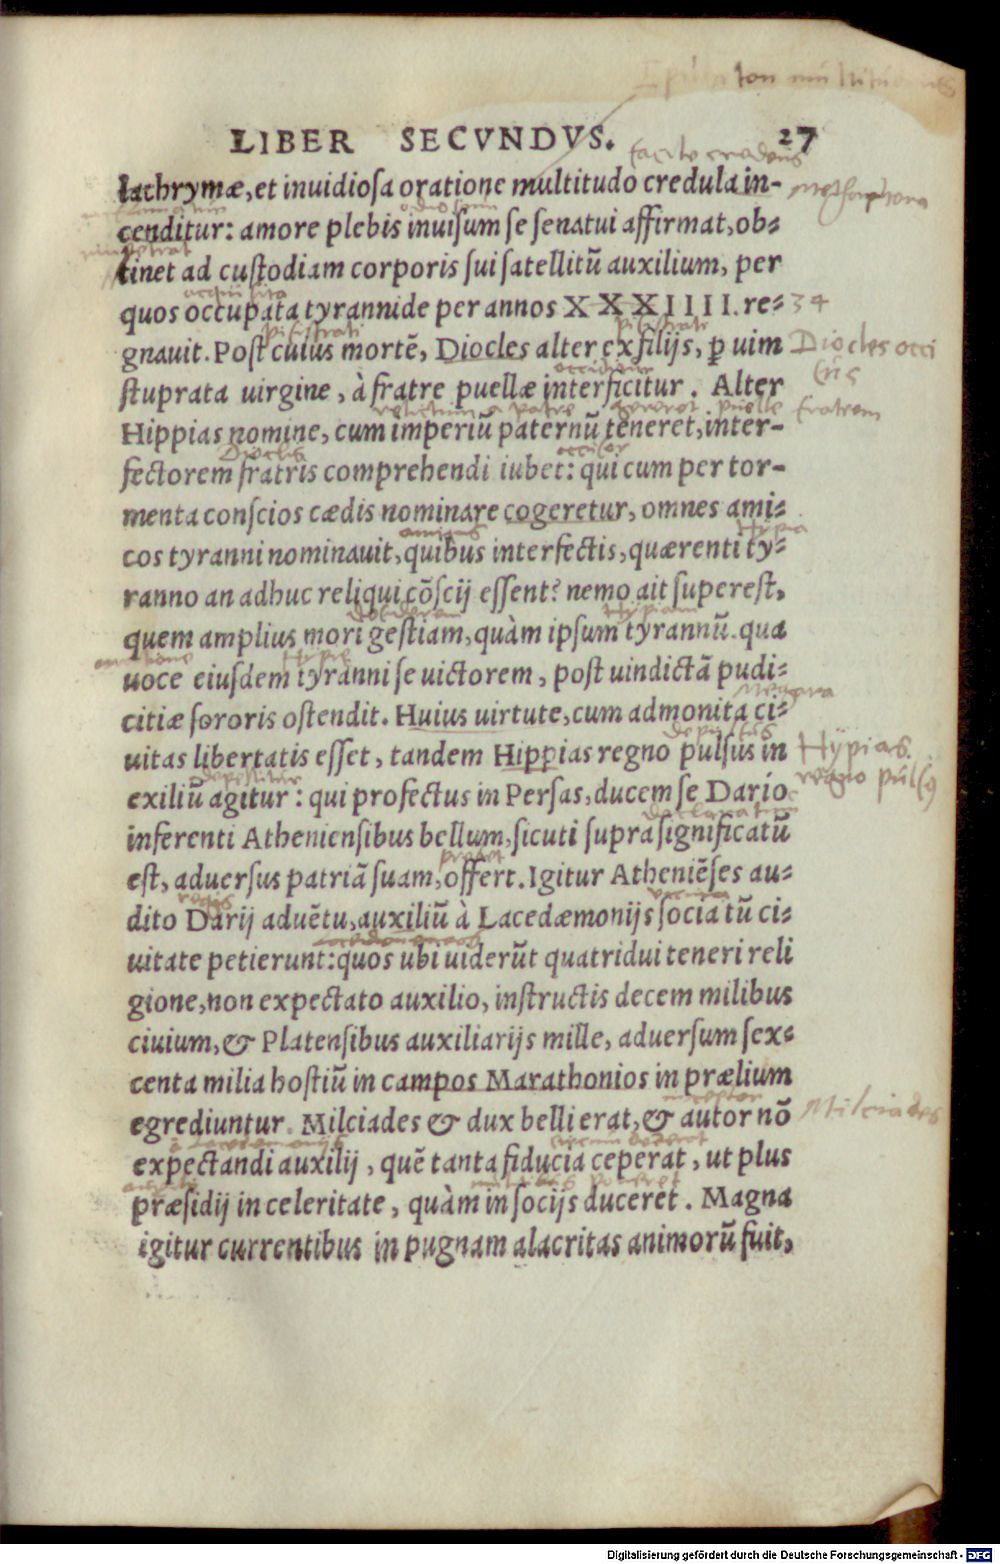 LIBER SECVNDVS. 27
facile credens
lachrymæ, et inuidiosa oratione multitudo credula in-
Methaphora
odiosum
cenditur: amore plebis inuisum se senatui affirmat, ob-
tinet ad custodiam corporis sui satellitũ auxilium, per
acquisita
quos occupata tyrannide per annos XXXIIII. re-
34
pisistrati pisistrati
gnauit. Post cuius mortẽ, Diocles alter ex filijs, ꝑ uim
Diocles occi
stuprata uirgine, à fratre puellæ interficitur. Alter
relictum a patre puelle fratrem
Hippias nomine, cum imperiũ paternũ teneret, inter-
Dioclis
fectorem fratris comprehendi iubet: qui cum per tor-
menta conscios cædis nominare cogeretur, omnes ami-
amicus Hypia
cos tyranni nominauit, quibus interfectis, quærenti ty-
ranno an adhuc reliqui cõscij essent? nemo ait superest,
desiderem Hypiam
quem amplius mori gestiam, quàm ipsum tyrannũ. qua
Hypie
uoce eiusdem tyranni se uictorem, post uindictã pudi-
Megara
citiæ sororis ostendit. Huius uirtute, cum admonita ci-
depulsus
uitas libertatis esset, tandem Hippias regno pulsus in
Hypias
regno pulsꝰ
exiliũ agitur: qui profectus in Persas, ducem se Darío
declaratum
inferenti Atheniensibus bellum, sicuti supra significatũ
est, aduersus patriã suam, offert. Igitur Atheniẽses au-
regis
dito Darij aduẽtu, auxiliũ à Lacedæmonijs socia tũ ci-
uitate petierunt: quos ubi uiderũt quatridui teneri reli
gione, non expectato auxilio, instructis decem milibus
ciuium, & Platensibus auxiliarijs mille, aduersum sex-
centa milia hostiũ in campos Marathonios in prælium
egrediuntur. Milciades & dux belli erat, & autor nõ
Milciades
expectandi auxilij, quẽ tanta fiducia ceperat, ut plus
præsidij in celeritate, quàm in socijs duceret. Magna
igitur currentibus in pugnam alacritas animorũ fuit,
Digitalisierung gefördert durch die Deutsche Forschungsgemeinschaft - DFG